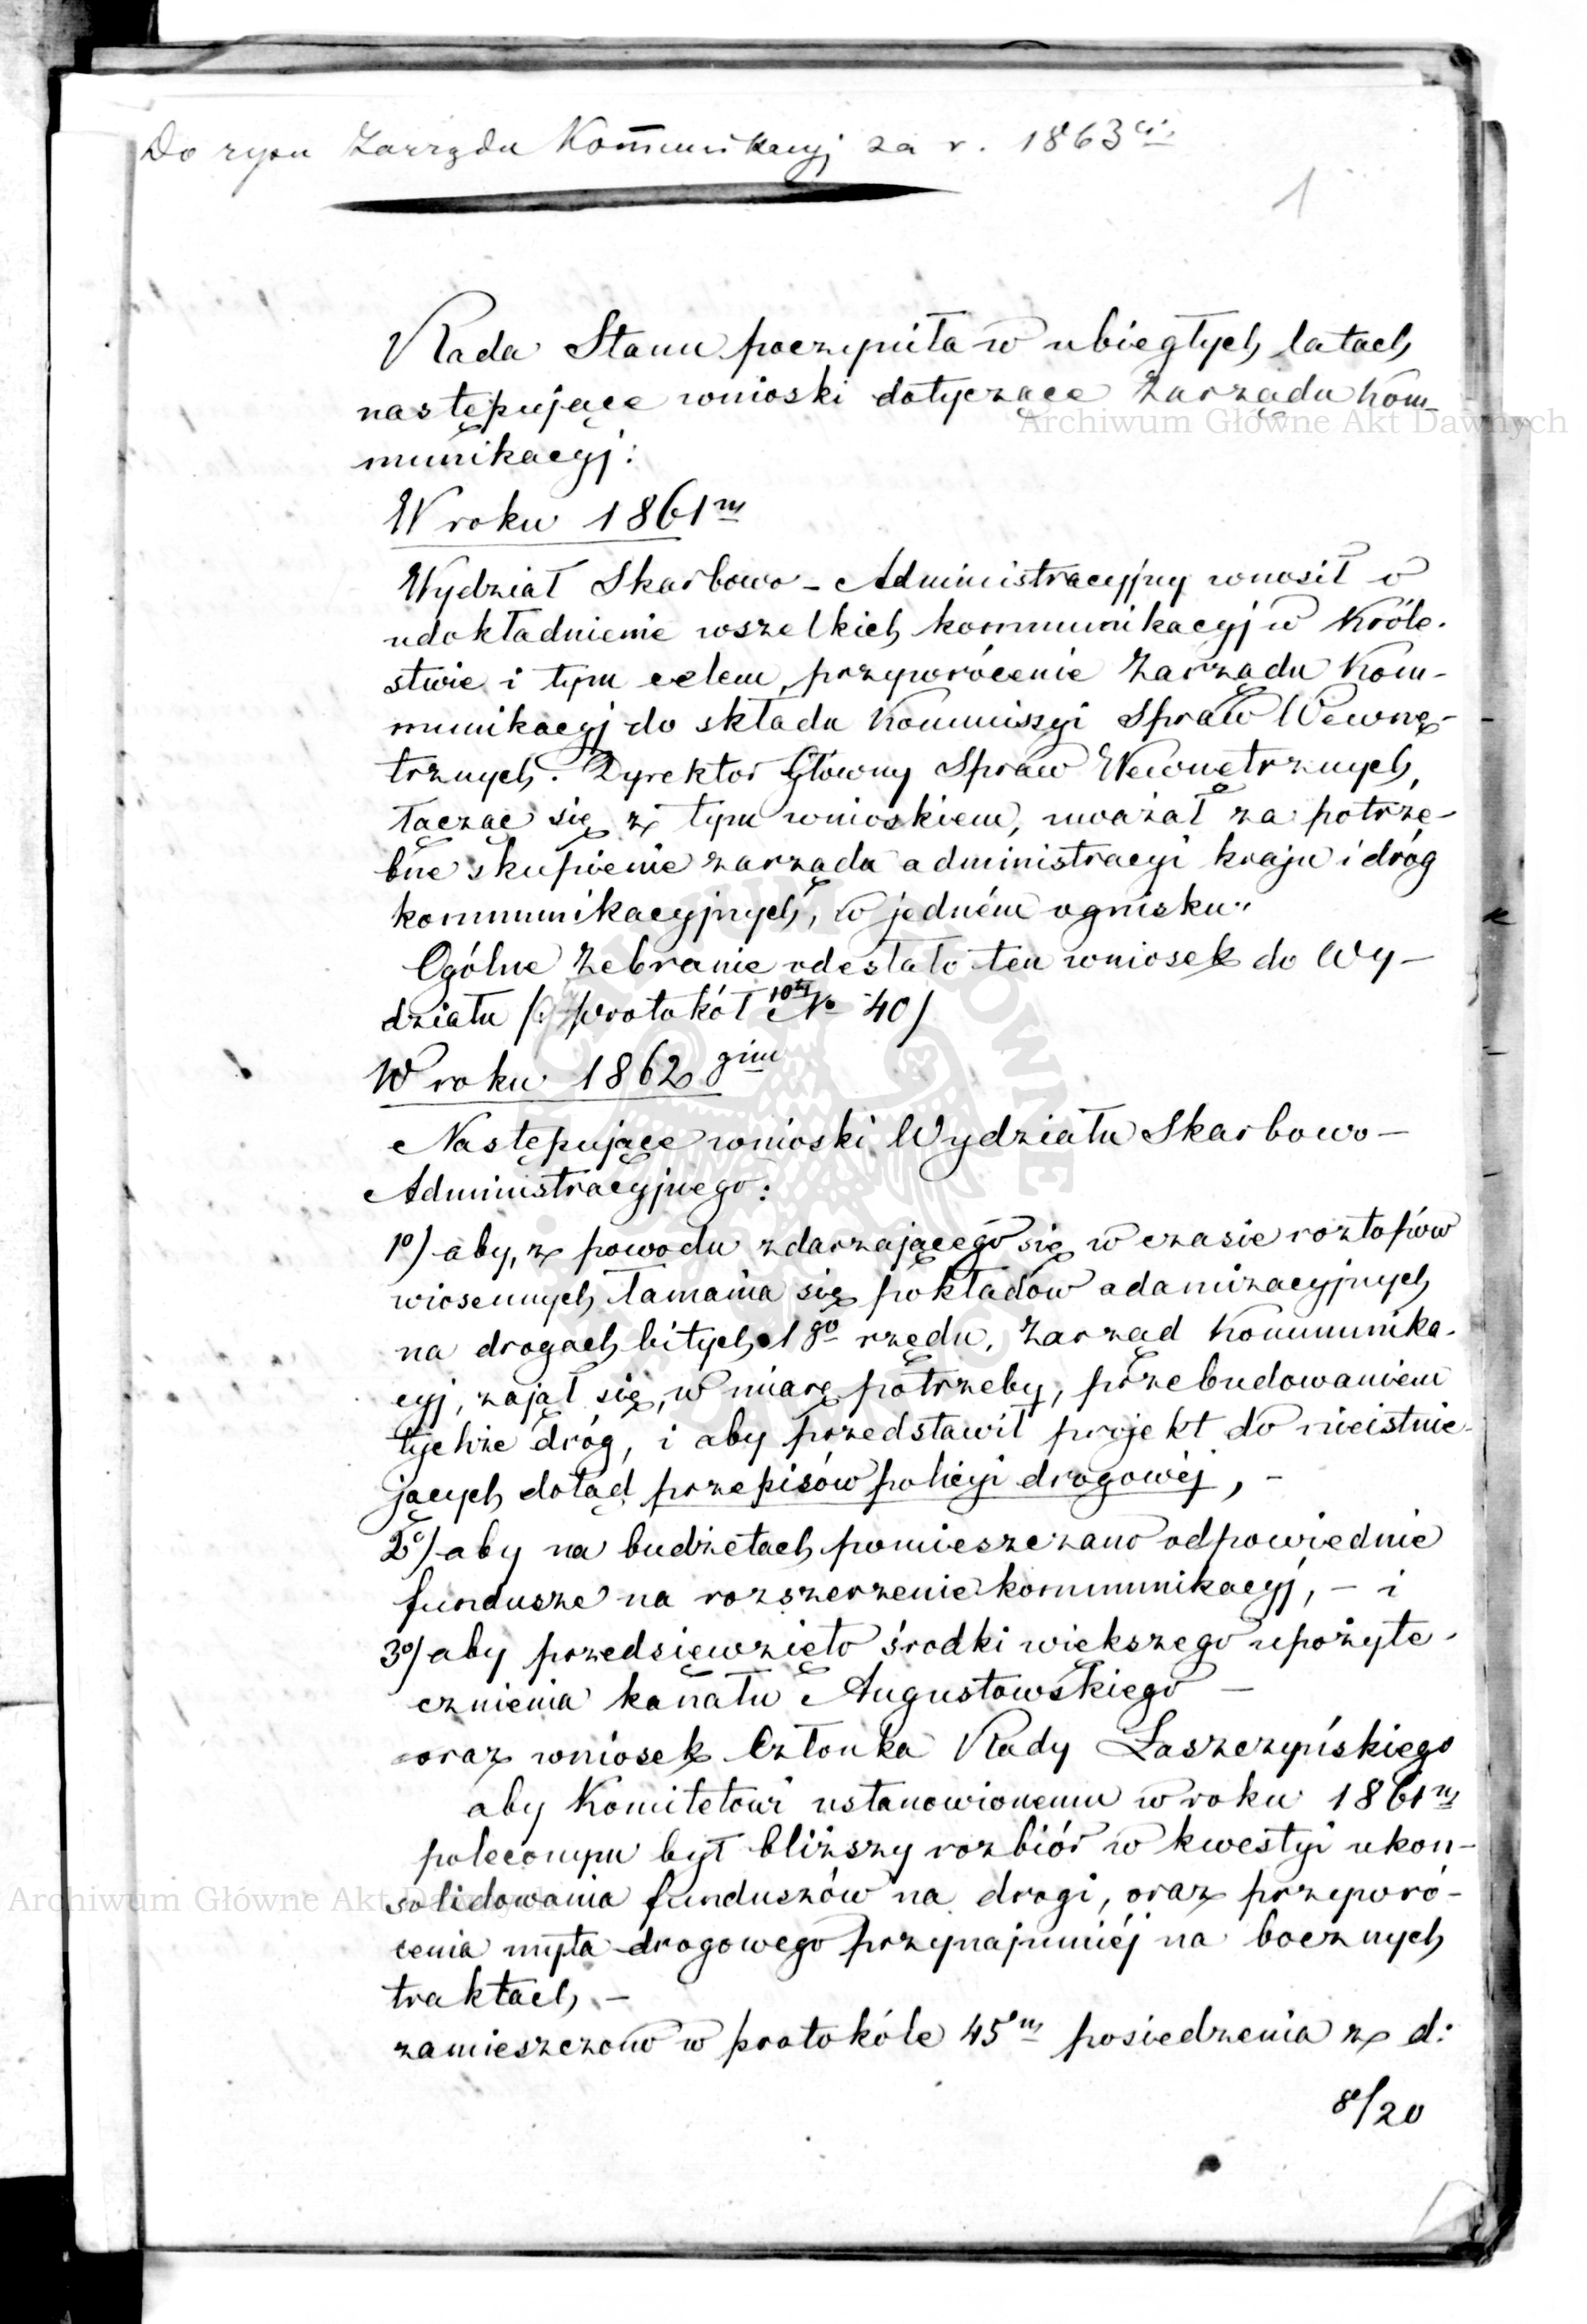 Do rysu Zarządu Kommunikacyj za r. 1863ci.
1
Rada Stanu poczyniła w ubiegłych latach
następujące wnioski dotyczące Zarządu Kom-
munikacyj:
W roku 1861m
Wydział Skarbowo-Administracyjny wnosił o
udokładnienie wszelkich kommunikacyj w Króle-
stwie i tym celem, przywrócenie Zarządu Kom-
munikacyj do składu Kommissyi Spraw Wewnę-
trznych. Dyrektor Główny Spraw Wewnętrznych,
łącząc się z tym wnioskiem, uważał za potrze-
bne skupienie zarządu administracyi kraju i dróg
kommunikacyjnych, w jedném ognisku."
Ogólne Zebranie odesłało ten wniosek do Wy-
działu (protokół 10ty № 40)
W roku 1862gim
Następujące wnioski Wydziału Skarbowo-
Administracyjnego:
1º) aby, z powodu zdarzającego się w czasie roztopów
wiosennych łamania się pokładów adamizacyjnych
na drogach bitych 1go rzędu, Zarząd Kommunika-
cyj, zajął się, w miarę potrzeby, przebudowaniem
tychże dróg, i aby przedstawił projekt do nieistnie-
jących dotąd przepisów policyi drogowéj, -
2º) aby na budżetach pomieszczano odpowiednie
fundusze na rozszerzenie kommunikacyj, - i
3º) aby przedsięwzięto środki większego upożyte-
cznienia kanału Augustowskiego -
oraz wniosek Członka Rady Łaszczyńskiego
aby Komitetowi ustanowionemu w roku 1861m
poleconym był bliższy rozbiór w kwestyi ukon-
solidowania funduszów na drogi, oraz przywró-
cenia myta drogowego przynajmniéj na bocznych
traktach, -
zamieszczono w protokóle 45m posiedzenia z d:
8/20
Archiwum Główne Akt Dawnych
Archiwum Główne Akt Dawnych